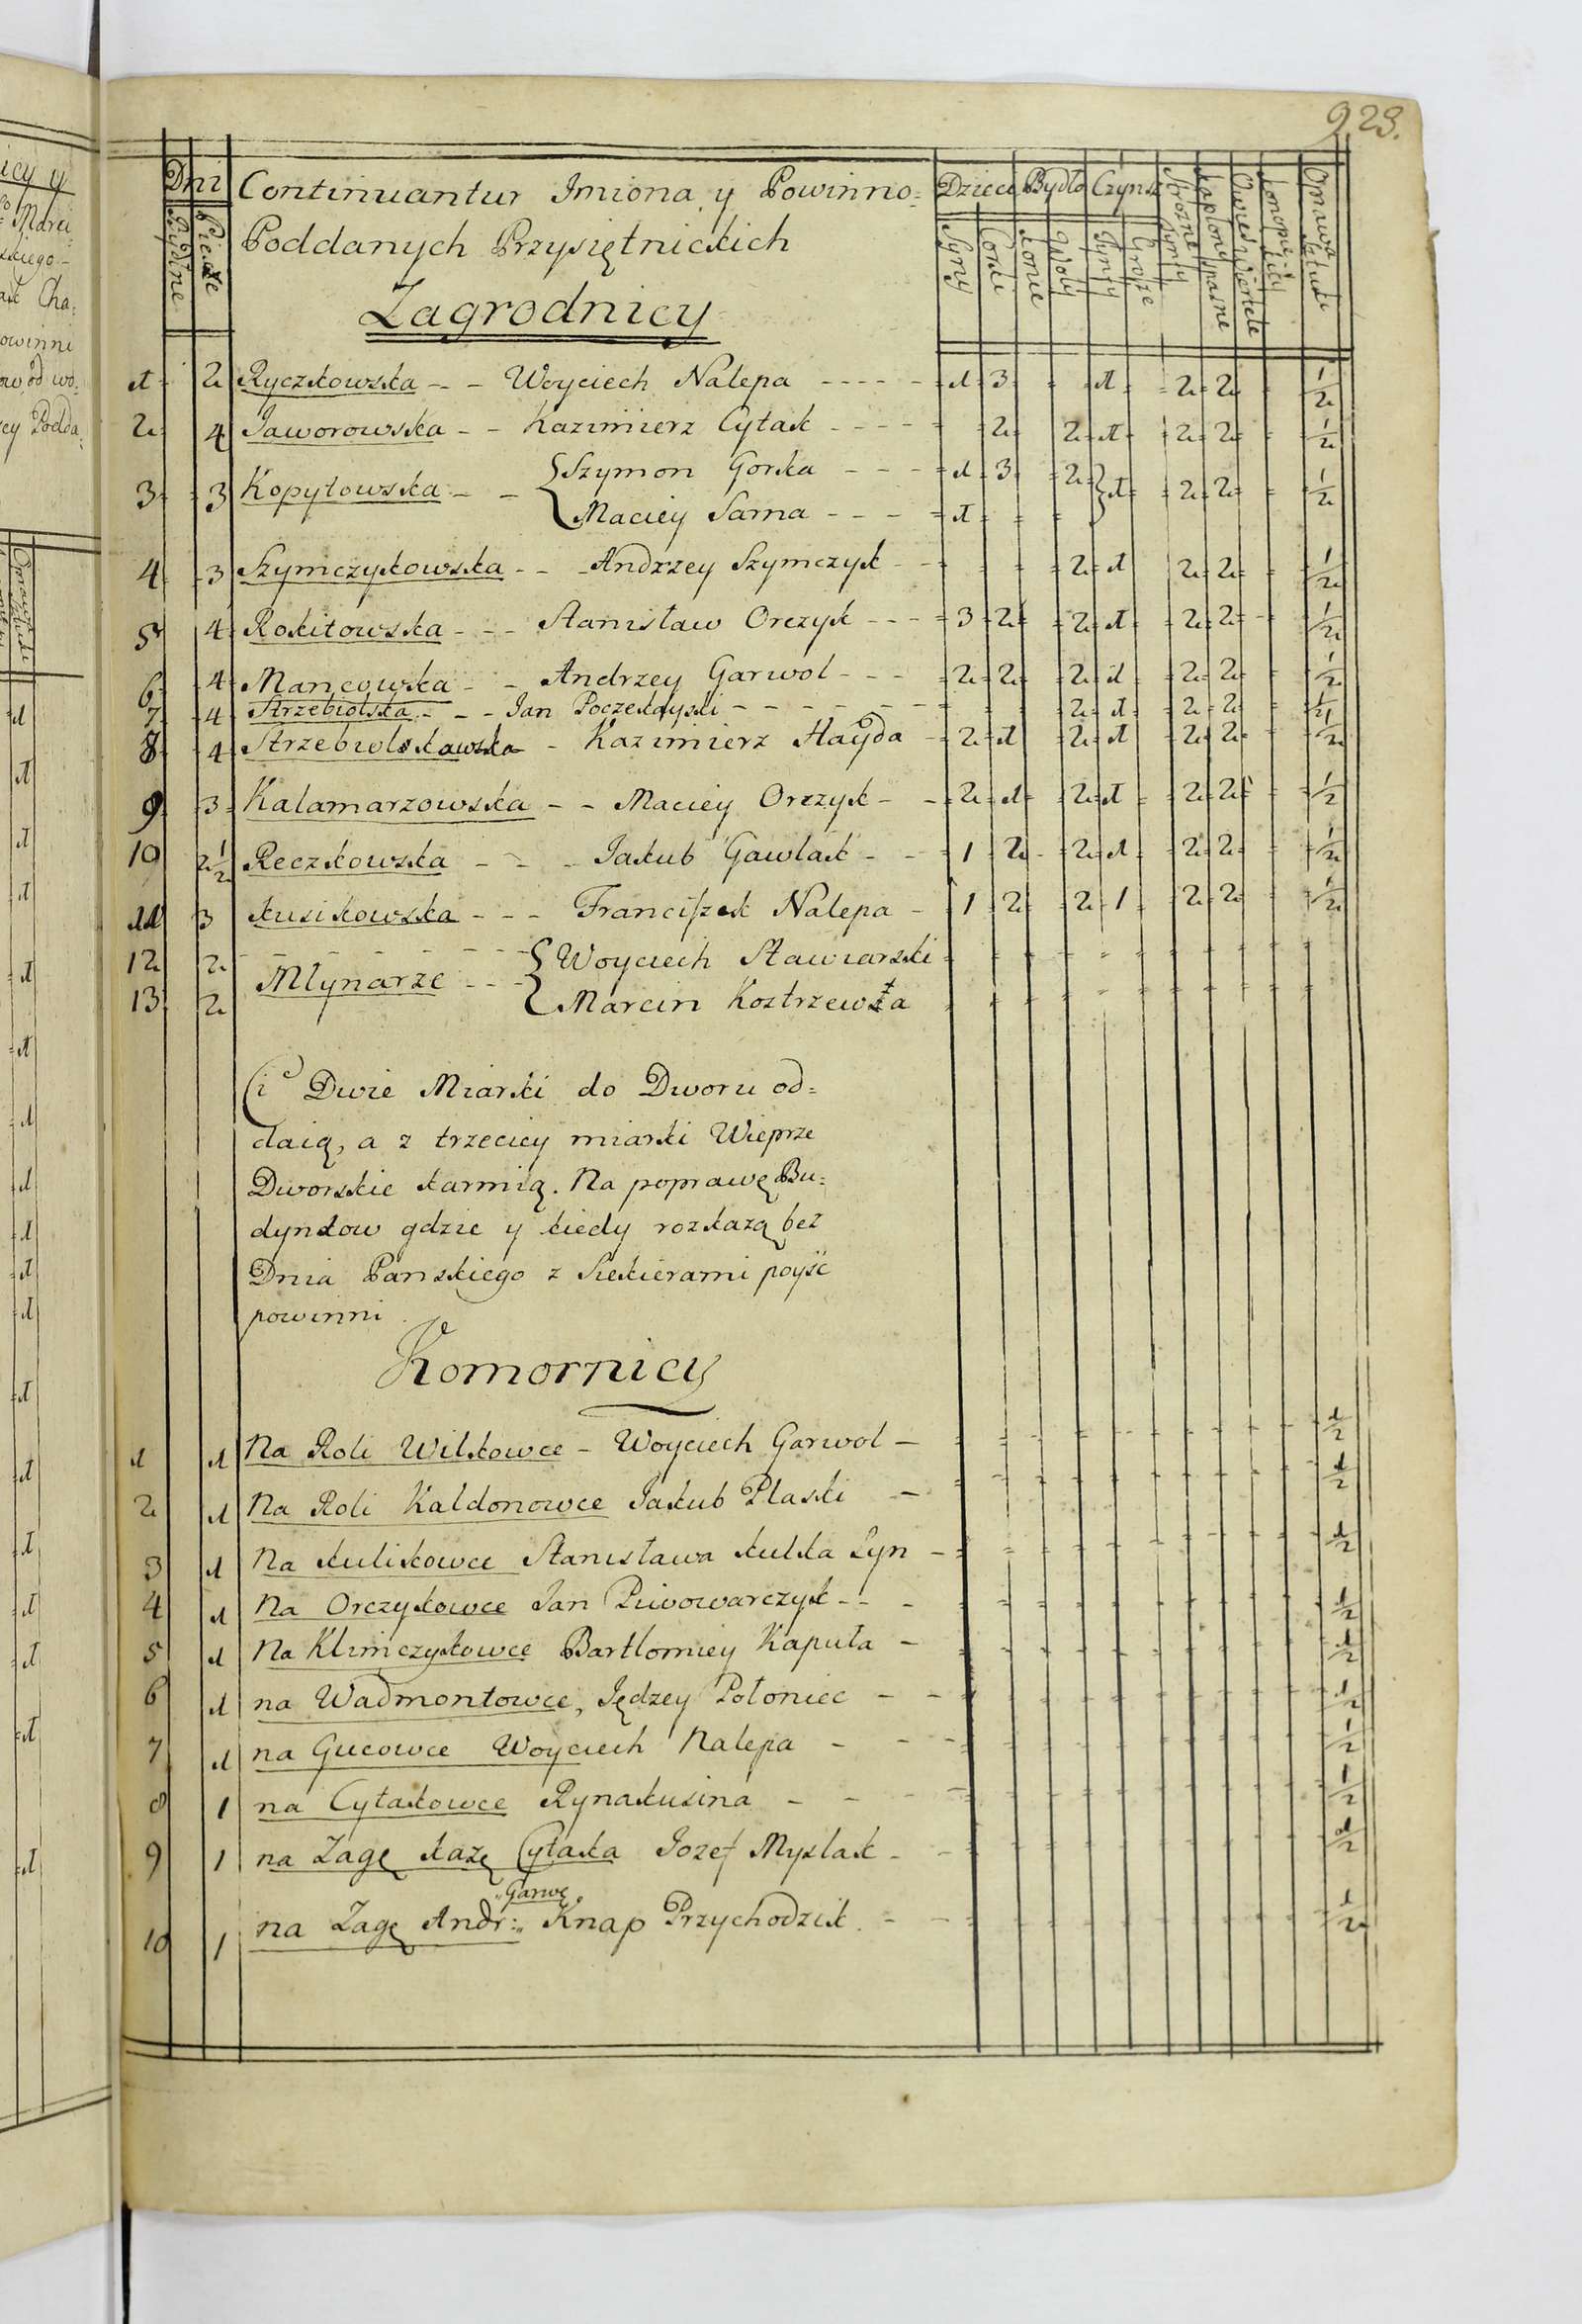 923.
Dni Continuantur Imiona y Powinno=
Dzieci Bydło Czynsz
Bydlne Piesze
Poddanych Przysiętnickich
Syny Corki Konie Woły Zynty Grosze Strozne Zynty Kapłony spasne Owies Wiertele Konopie Oprawa Sztuki
Zagrodnicy
1 2 Ryczkowska - - Woyciech Nalepa - - - - 1 3 = = 1 = 2 2 = 1/2
2 4 Jaworowska - - Kazimierz Cytak - - - - = 2 2 1 = 2 2 = 1/2
3 3 Kopytowska - - { Szymon Gorka - - - 1 3 = 2 } 1 = 2 2 = 1/2
{ Maciey Sarna - - - 1 = = =
4 3 Szymczykowska - - Andrzey Szymczyk - - 2 1 2 2 = 1/2
5 4 Rokitowska - - - Stanisław Orczyk - - - 3 2 2 1 2 2 = 1/2
6 4 Mancowska - - Andrzey Garwol - - - 2 2 2 1 2 2 = 1/2
7 4 Strzebiolska - - - Jan Poczekayski - - - - - - 2 1 2 2 = 1/2
8 4 Strzebiolskawska - Kazimierz Hayda - 2 1 2 1 2 2 = 1/2
9 3 Kalamarzowska - - Maciey Orczyk - - 2 1 2 1 2 2 = 1/2
10 2 1/2 Reczkowska - - - Jakub Gawlak - - 1 2 2 1 2 2 = 1/2
11 3 Kusikowska - - - Franciszek Nalepa - 1 2 2 1 2 2 = 1/2
12 2 - - - - - - { Woyciech Stawiarski
Młynarze - - -
13 2 { Marcin Kostrzewska
Ci Dwie Miarki do Dworu od=
daią, a z trzeciey miarki Wieprze
Dworskie karmią. Na poprawę Bu=
dynkow gdzie y kiedy rozkażą bez
Dnia Panskiego z Siekierami poyść
powinni
Komornicy
1 1 Na Roli Wilkowce - Woyciech Garwol - 1/2
2 1 Na Roli Kaldonowce Jakub Płaski - 1/2
3 1 Na Kulikowce Stanisława Kulka Syn - 1/2
4 1 Na Orczykowce Jan Piwowarczyk - - - 1/2
5 1 Na Klimczykowce Bartłomiey Kaputa - 1/2
6 1 na Wadmontowce, Jędzey Połoniec - - 1/2
7 1 na Gucowce Woyciech Nalepa - - - 1/2
8 1 na Cytakowce Rynakusina - - - - 1/2
9 1 na Zagę Kazę Cytaka Jozef Myslak - - 1/2
"Garwę"
10 1 na Zagę Andr:" Knap Przychodzik. - - 1/2